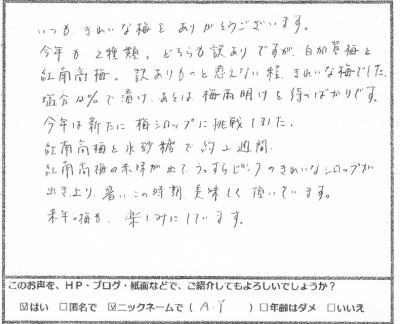 いつも、きれいな梅を ありがとうございます。
今年も 2種類。どちらも訳ありですが、白加賀梅と
紅南高梅。訳ありものと思えない程、きれいな梅でした。
塩分12%で漬け、あとは 梅雨明けを待つばかりです。
今年は新たに 梅シロップに挑戦しました。
紅南高梅と氷砂糖で 約2週間、
紅南高梅の赤味が出て、うっすらピンクのきれいなシロップが
出き上り、暑いこの時期、美味しく 頂いています。
来年の梅も、楽しみにしています。
このお声を、HP・ブログ・紙面などで、ご紹介してもよろしいでしょうか?
☑はい □匿名で ☑ニックネームで ( A.Y ) □年齢はダメ □いいえ